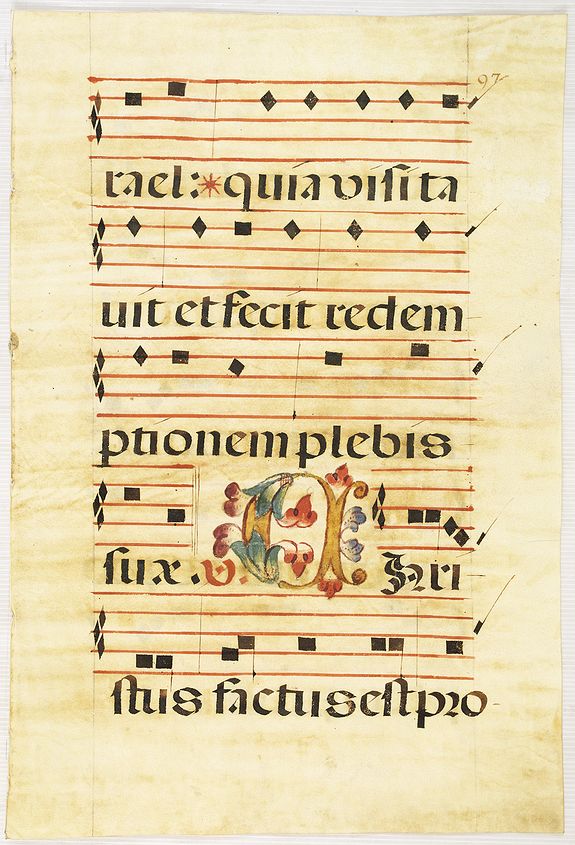 97
rael:*quia viſita
uit et fecit redem
ptionem plebis
ſuæ. v. CHri
ſtus factus eſt pro-